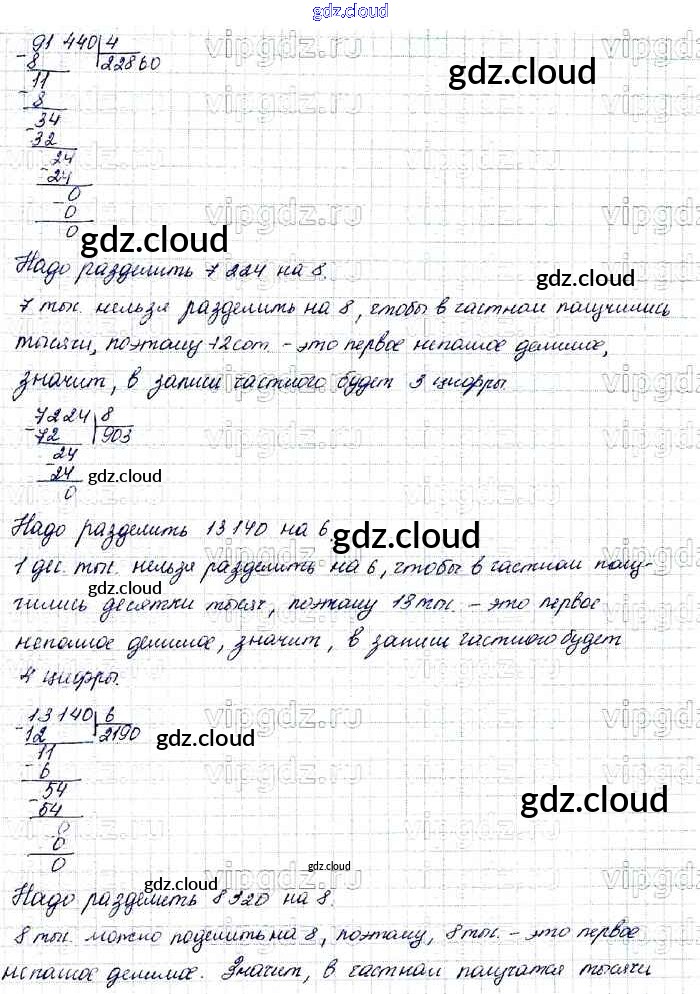 gdz.cloud
91 440 4
8 22860
gdz.cloud
11
8
34
32
24
24
0
0
0
gdz.cloud
Надо разделить 7 224 на 8.
gdz.cloud
7 тыс. нельзя разделить на 8, чтобы в частном получились
тысячи, поэтому 72 сот. - это первое неполное делимое,
значит, в записи частного будет 3 цифры.
7224 8
72 903
24
24 gdz.cloud
0
Надо разделить 13 140 на 6.
gdz.cloud
1 дес. тыс. нельзя разделить на 6, чтобы в частном полу-
gdz.cloud
чились десятки тысяч, поэтому 13 тыс. - это первое
неполное делимое, значит, в записи частного будет
4 цифры.
13 140 6
12 2190 gdz.cloud
11
6
54
54
gdz.cloud
0
0
0
gdz.cloud
gdz.cloud
Надо разделить 8 320 на 8.
8 тыс. можно поделить на 8, поэтому, 8 тыс. - это первое
неполное делимое. Значит, в частном получатся тысячи